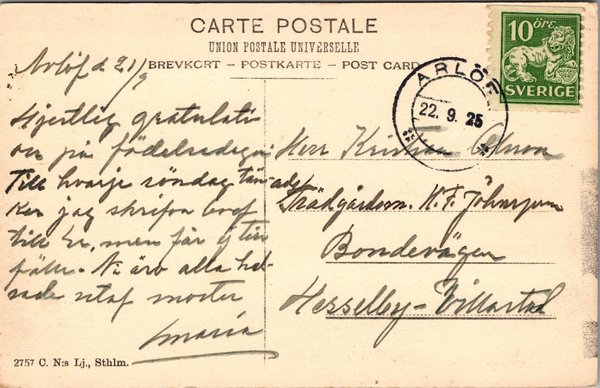 CARTE POSTALE
UNION POSTALE UNIVERSELLE
BREVKORT – POSTKARTE – POST CARD
10 ÖRE
SVERIGE
ARLÖF
22. 9. 25
Arlöf d 21/9
Hjertlig gratulati
on på födelsedagen
Till hvarje söndag tän
ker jag skrifva bref
till Er, men får ej till
fälle. Ni äro alla hel
sade utaf moster
Maria
Herr Kristian Olson
adr Trädgårdsm. K. F. Johnson
Bondevägen
Hesselby-Villastad
2757 C. N:s Lj., Sthlm.